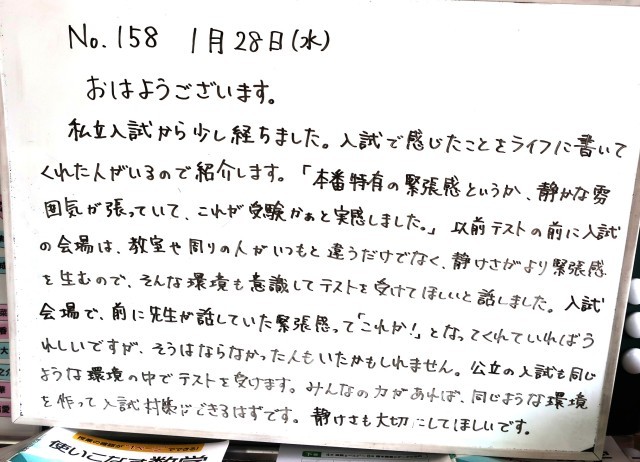 No.158 1月28日(水)
おはようございます。
私立入試から少し経ちました。入試で感じたことをライフに書いて
くれた人がいるので紹介します。「本番特有の緊張感というか、静かな雰
囲気が張っていて、これが受験かぁと実感しました。」以前テストの前に入試
の会場は、教室や周りの人がいつもと違うだけでなく、静けさがより緊張感
を生むので、そんな環境も意識してテストを受けてほしいと話しました。入試
会場で、前に先生が話していた緊張感って「これか!」となってくれていればう
れしいですが、そうはならなかった人もいたかもしれません。公立の入試も同じ
ような環境の中でテストを受けます。みんなの力があれば、同じような環境
を作って入試対策ができるはずです。静けさも大切にしてほしいです。
使いこなす数学